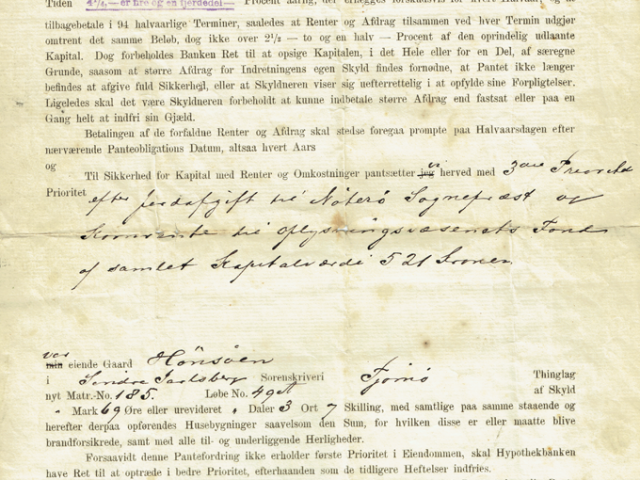 Tiden 4¼ – er fire og en fjerdedel – Procent aarlig, der erlægges forskudsvis for hvert Halvaar og at
tilbagebetale i 94 halvaarlige Terminer, saaledes at Renter og Afdrag tilsammen ved hver Termin udgjør
omtrent det samme Beløb, dog ikke over 2½ – to og en halv – Procent af den oprindelig udlaante
Kapital. Dog forbeholdes Banken Ret til at opsige Kapitalen, i det Hele eller for en Del, af særegne
Grunde, saasom at større Afdrag for Indretningens egen Skyld findes fornødne, at Pantet ikke længer
befindes at afgive fuld Sikkerhed, eller at Skyldneren viser sig uefterrettelig i at opfylde sine Forpligtelser.
Ligeledes skal det være Skyldneren forbeholdt at kunne indbetale større Afdrag end fastsat eller paa en
Gang helt at indfri sin Gjæld.
Betalingen af de forfaldne Renter og Afdrag skal stedse foregaa prompte paa Halvaarsdagen efter
nærværende Panteobligations Datum, altsaa hvert Aars
og
Til Sikkerhed for Kapital med Renter og Omkostninger pantsætter jeg vi herved med 3die Prioritet
Prioritet efter jordafgift til Nøterø Sognepræst og
til Oplysningsvæsenets Fond
af samlet Kapitalværdi 521 Kroner
vor
min eiende Gaard Hönsöen
i Söndre Jarlsberg Sorenskriveri Tjømø Thinglag
nyt Matr.-No. 185. Løbe No. 49a af Skyld
" Mark 69 Øre eller urevideret " Daler 3 Ort 7 Skilling, med samtlige paa samme staaende og
herefter derpaa opførendes Husebygninger saavelsom den Sum, for hvilken disse er eller maatte blive
brandforsikrede, samt med alle til- og underliggende Herligheder.
Forsaavidt denne Pantefordring ikke erholder første Prioritet i Eiendommen, skal Hypothekbanken
have Ret til at optræde i bedre Prioritet, efterhaanden som de tidligere Heftelser indfries.